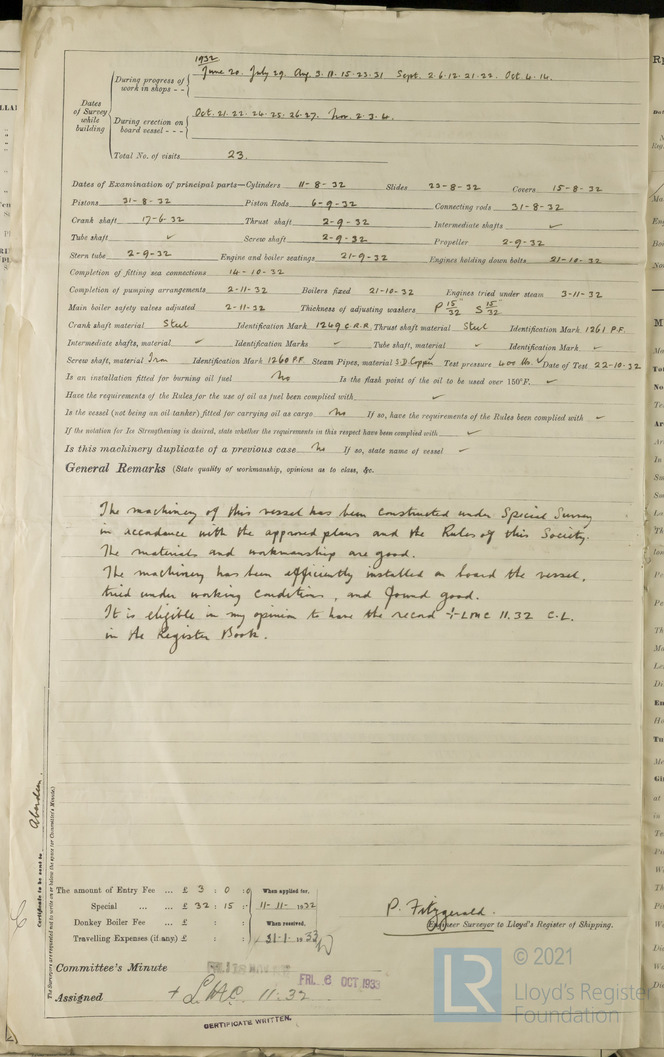 1932
During progress of work in shops - - June 20. July 29. Aug. 3. 11. 15. 23. 31 Sept. 2. 6. 12. 21. 22. Oct. 4. 14.
Dates of Survey while building
During erection on board vessel - - - Oct. 21. 22. 24. 25. 26. 27. Nov. 2. 3. 4.
Total No. of visits 23.
Dates of Examination of principal parts—Cylinders 11-8-32 Slides 23-8-32 Covers 15-8-32
Pistons 31-8-32 Piston Rods 6-9-32 Connecting rods 31-8-32
Crank shaft 17-6-32 Thrust shaft 2-9-32 Intermediate shafts ✓
Tube shaft ✓ Screw shaft 2-9-32 Propeller 2-9-32
Stern tube 2-9-32 Engine and boiler seatings 21-9-32 Engines holding down bolts 21-10-32
Completion of fitting sea connections 14-10-32
Completion of pumping arrangements 2-11-32 Boilers fixed 21-10-32 Engines tried under steam 3-11-32
Main boiler safety valves adjusted 2-11-32 Thickness of adjusting washers P 15/32" S 15/32"
Crank shaft material Steel Identification Mark 1249 C.R.R. Thrust shaft material Steel Identification Mark 1261 P.F.
Intermediate shafts, material ✓ Identification Marks ✓ Tube shaft, material ✓ Identification Mark ✓
Screw shaft, material Iron Identification Mark 1260 P.F. Steam Pipes, material S.D. Copper Test pressure 400 lbs. ✓ Date of Test 22-10-32
Is an installation fitted for burning oil fuel No Is the flash point of the oil to be used over 150°F. ✓
Have the requirements of the Rules for the use of oil as fuel been complied with ✓
Is the vessel (not being an oil tanker) fitted for carrying oil as cargo No If so, have the requirements of the Rules been complied with ✓
If the notation for Ice Strengthening is desired, state whether the requirements in this respect have been complied with ✓
Is this machinery duplicate of a previous case No If so, state name of vessel ✓
General Remarks (State quality of workmanship, opinions as to class, &c.
The machinery of this vessel has been constructed under Special Survey
in accordance with the approved plans and the Rules of this Society.
The materials and workmanship are good.
The machinery has been efficiently installed on board the vessel,
tried under working conditions, and found good.
It is eligible in my opinion to have the record + LMC 11.32 C.L.
in the Register Book.
Certificate to be sent to Aberdeen.
(The Surveyors are requested not to write on or below the space for Committee's Minute.)
The amount of Entry Fee ... £ 3 : 0 : 0 When applied for,
Special ... ... £ 32 : 15 : - 11-11-1932
Donkey Boiler Fee ... £ : : When received,
Travelling Expenses (if any) £ : : 31-1-1933
P. Fitzgerald.
Engineer Surveyor to Lloyd's Register of Shipping.
Committee's Minute
FRI. 6 OCT 1933
Assigned + LMC 11.32
CERTIFICATE WRITTEN.
LR
© 2021
Lloyd's Register
Foundation